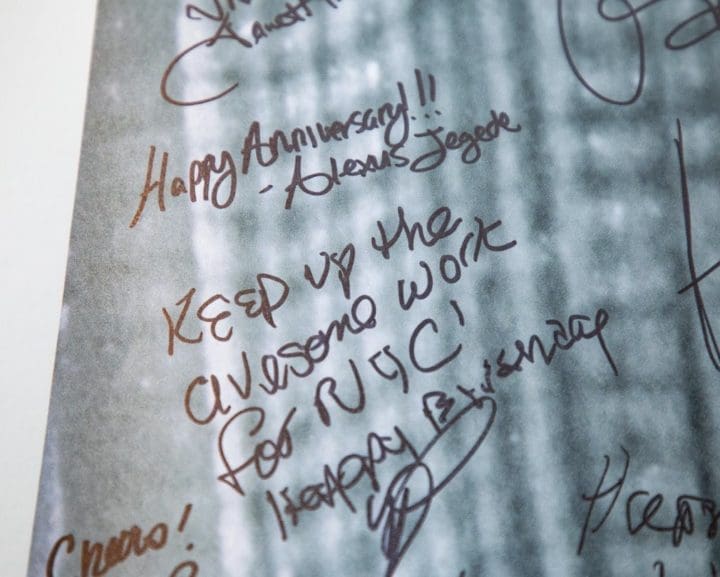 Happy Anniversary!!!
- Alexus Jegede
KEEP up the
awesome work
for NYC!
Happy Birthday
Cheers!